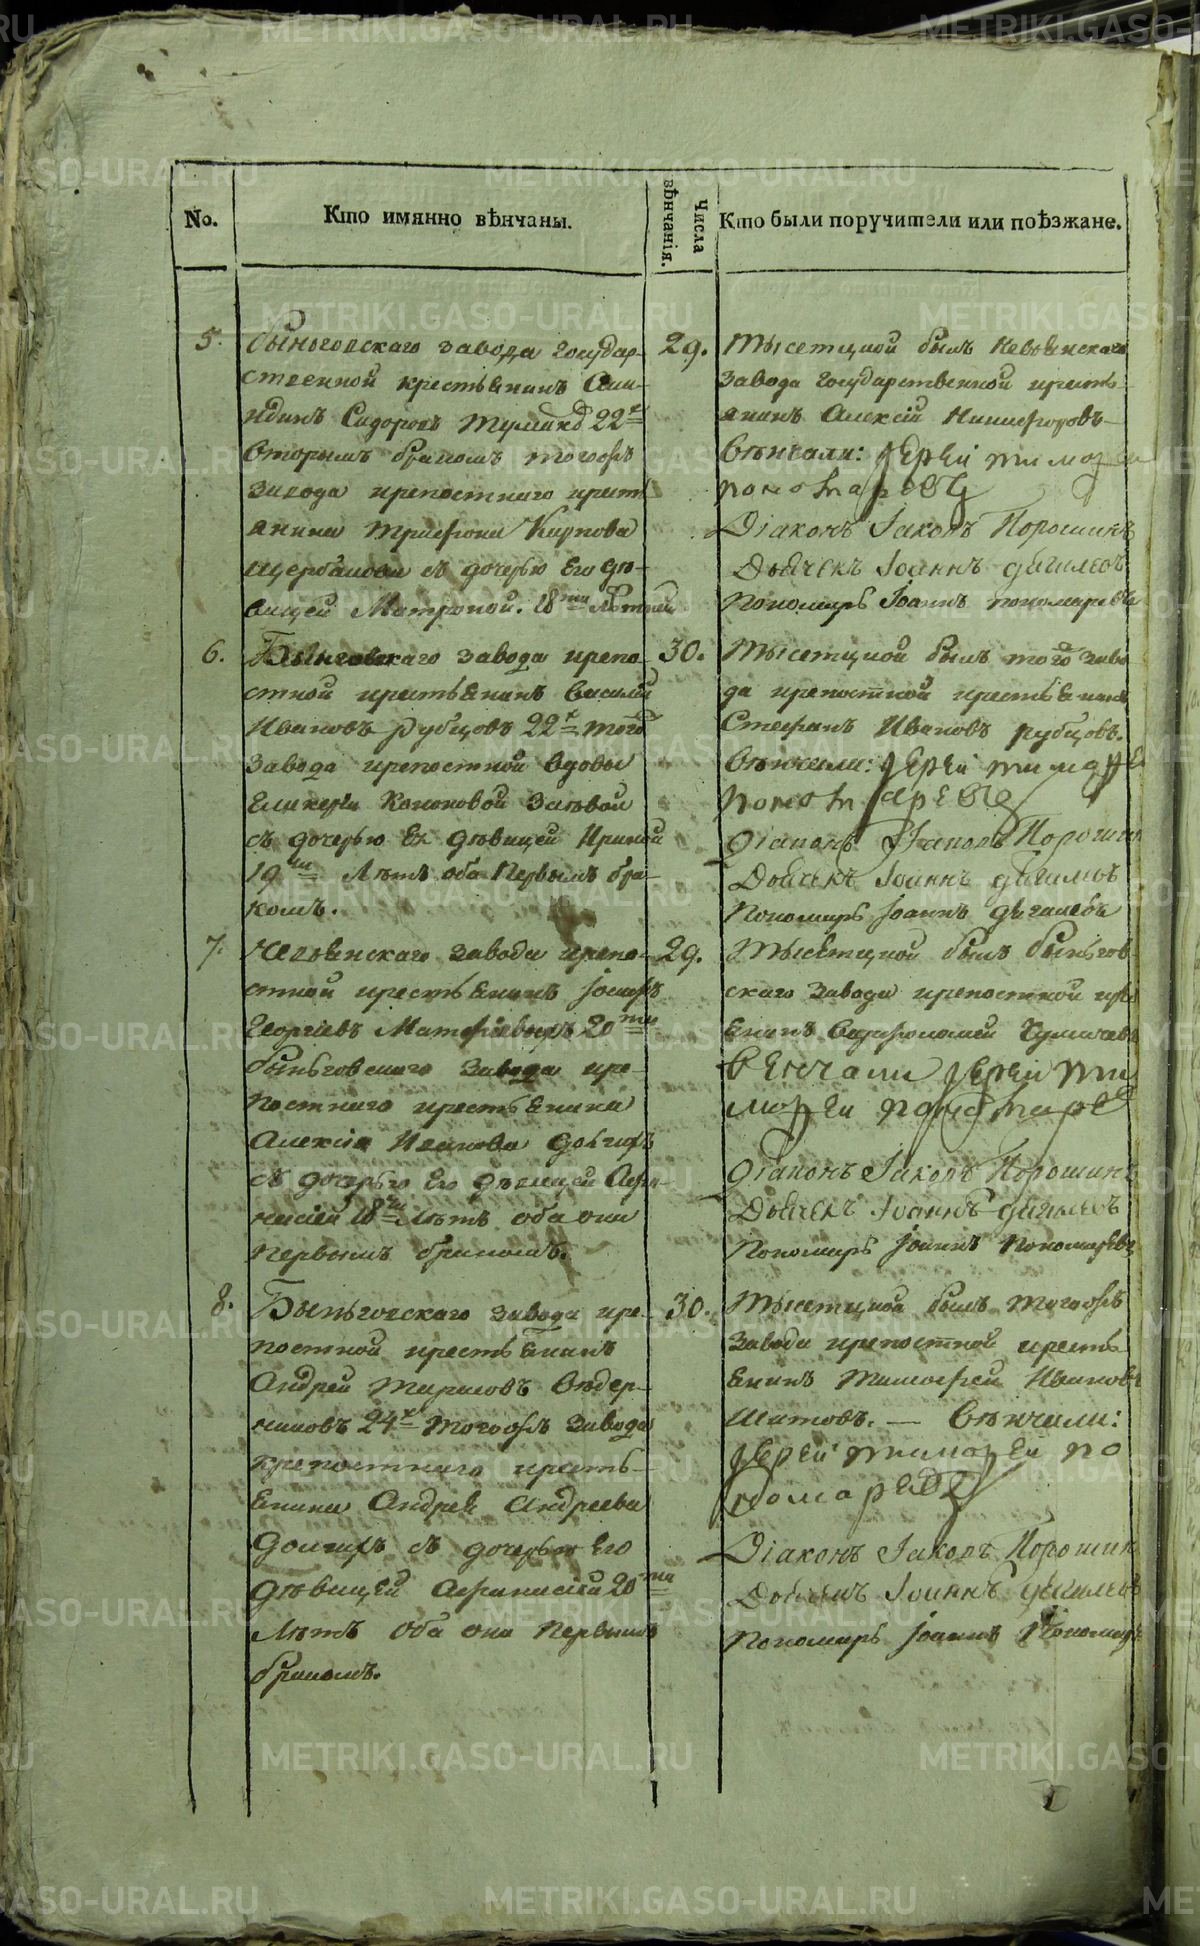 METRIKI.GASO-URAL.RU
No.
Кто имянно вѣнчаны.
Числа вѣнчанія.
Кто были поручители или поѣзжане.
5.
Быньговскаго завода государ-
ственной крестьянинъ
Сидоровъ 22х
вторымъ бракомъ тогожъ
завода крепостнаго крест
янина Трифона Карпова
Щербакова съ дочерью Его дѣ-
вицей Матроной. 18ти Лѣтней
29.
Тысетцкой былъ Невьянскаго
завода государственной кресть
янинъ Алексѣй Никифоровъ
Вѣнчали: Іерей Тимофей
Пономаревъ
Діаконъ Іаковъ Порошинъ
Дьячекъ Іоаннъ
Пономарь Іоаннъ Пономаревъ
6.
Быньговскаго завода крепо-
стной крестьянинъ Василій
Ивановъ Рубцовъ 22х того
завода крепостной вдовы
Гликеріи Кононовой
съ дочерью Ея дѣвицей Ириной
19ти Лѣтъ оба Первымъ бра-
комъ.
30.
Тысетцкой былъ того заво
да крепостной крестьянинъ
Стефанъ Ивановъ Рубцовъ.
Вѣнчали: Іерей Тимофей
Пономаревъ
Діаконъ Іаковъ Порошин
Дьячекъ Іоаннъ
Пономарь Іоаннъ
7.
Невьянскаго завода крепо-
стной крестьянинъ Іосифъ
Георгіевъ Матфіевыхъ 20ти
Быньговскаго завода кре-
постнаго крестьянина
Алексія Иванова
съ дочерью Его дѣвицей Афа-
насіей 18ти Лѣтъ оба они
Первымъ бракомъ.
29.
Тысетцкой былъ Быньгов
скаго завода крепостной крес
янинъ
Венчали Іерей Ти
мофей Пономарев
Діаконъ Іаковъ Порошинъ
Дьячекъ Іоаннъ
Пономарь Іоаннъ Пономаревъ
8.
Быньговскаго завода кре-
постной крестьянинъ
Андрей Тарасовъ Ведер-
никовъ 24х тогожъ завода
крепостнаго кресть-
янина Андрея Андреева
съ дочерью Его
дѣвицей Афанасіей 20ти
Лѣтъ Оба они Первымъ
бракомъ.
30.
Тысетцкой былъ тогожъ
завода крепостной кресть
янинъ Тимофей Ивановъ
Шитовъ. — Вѣнчали:
Іерей Тимофей По
номаревъ
Діаконъ Іаковъ Порошин
Дьячекъ Іоаннъ
Пономарь Іоаннъ Пономар